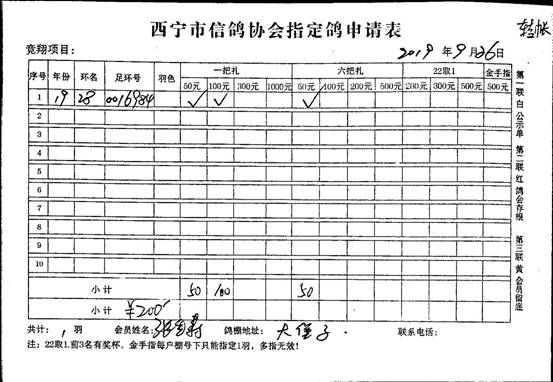 西宁市信鸽协会指定鸽申请表 转帐
竞翔项目： 2019年9月26日
序号 年份 环名 足环号 羽色 一把扎 六把扎 22取1 金手指
50元 100元 300元 1000元 50元 100元 200元 500元 200元 300元 500元 500元
1 19 28 0016984 ✓ ✓ ✓
2
3
4
5
6
7
8
9
10
小计 50 100 50
小计 ¥200
共计： 1 羽 会员姓名： 鸽棚地址： 大堡子 联系电话：
注：22取1.前3名有奖杯。金手指每户棚号下只能指定1羽，多指无效！
第一联白公示单 第二联红鸽会存根 第三联黄会员留底